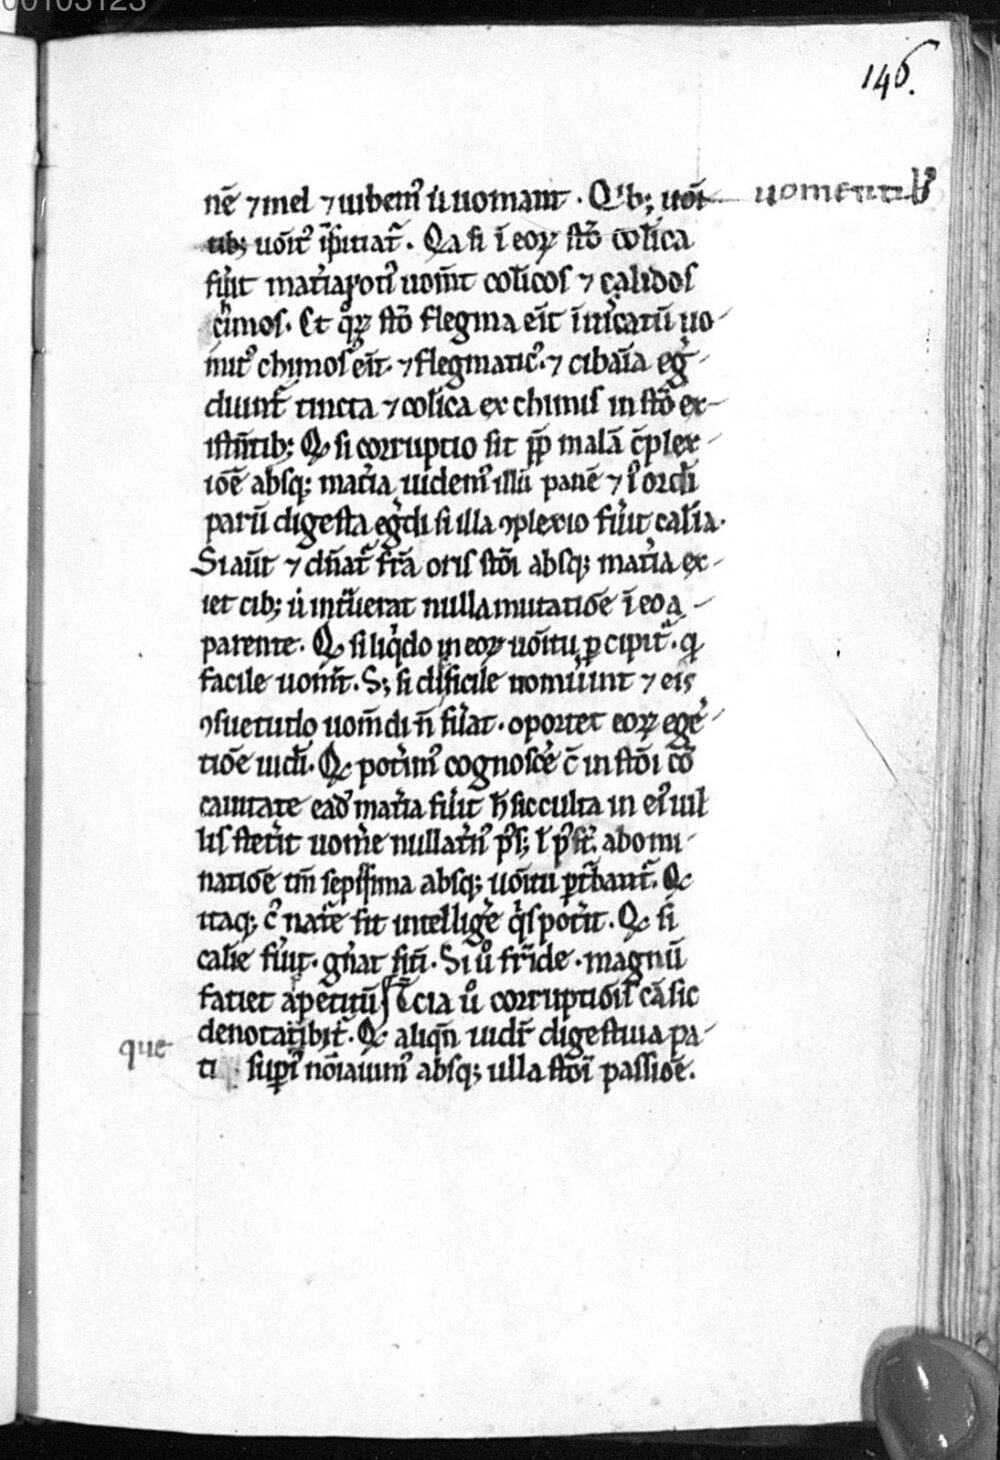 00103123
146.
nē ⁊ mel ⁊ iubem᷒ ut uomant · Qⁱb; uōi uomentib᷒
tib; uōit᷒ īspitiat᷑ . Qa si ī eoꝝ stō colica
fu̾it mat̾ia uom̄t colicos ⁊ calidos
chimos . Et qꝝ stō flegma eīt uo
mit᷒ chimos eīt · ⁊ flegmatic᷒ · ⁊ cibaīa eg̾
diunt᷑ tincta ⁊ colica ex chimis in stō ex
istn̄tib; Q si corruptio sit ꝓp malā ꝯplex
iōē absq; mat̾ia uidem᷒ illū panē ⁊ i᷒ ordī
parū digesta eg̾di si illa ꝯplexio fu̾it calīa .
Si aūt ⁊ dn̄at᷑ fr̄a oris stōi absq; mat̾ia ex
iet cib; ut int᷑uerat nulla mutatiōē ī eo a
parente . Q si liq̊do in eoꝝ uōitu ꝑcipit᷑ . q
facile uom̄t . S; si dificile uomūint ⁊ eis
ꝯsuetudo uom̄di n̄ fu̾at . oportet eoꝝ ege᷒
tiōē uidi . Q pot̾im᷒ cognosc̾e ē in stōi cō
cauitate ead᷒ mat̾ia fu̾it h̄ si occulta in ei᷒ uil
lis stet̾it uom̾e nullat̾n᷒ pōs; l̄ pōst . abomi
natiōē tm̄ sepissima absq; uōitu ꝑt᷑bant᷑ . Q
itaq; c᷒ nat᷑ē sit intellig̾e q̊s pot̾it . Q si
calīe fu̾it . gn̾at sitī . Si uº fr̄ide . magnū
faciet apetitū Tcia uº corruptiōis cā sic
denotabit᷑ . Q aliqn̄ uidr̄ digestiua pa
que
ti sup̾i᷒ nōiauim᷒ absq; ulla stōī passiōē .